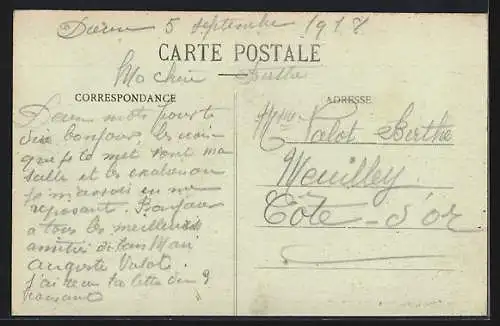 5 septembre 1917
CARTE POSTALE
Ma chère Berthe
CORRESPONDANCE
ADRESSE
Deux mots pour te
dire bonjour, les croix
que je te met sont ma
salle et les
je m'assois en me
reposant. Bonjour
à tous les meilleurs
amitiés de ton Mari
Auguste Valot.
J'ai reçu ta lettre du 9
Mme Valot Berthe
Meuilley
Côte-d'or